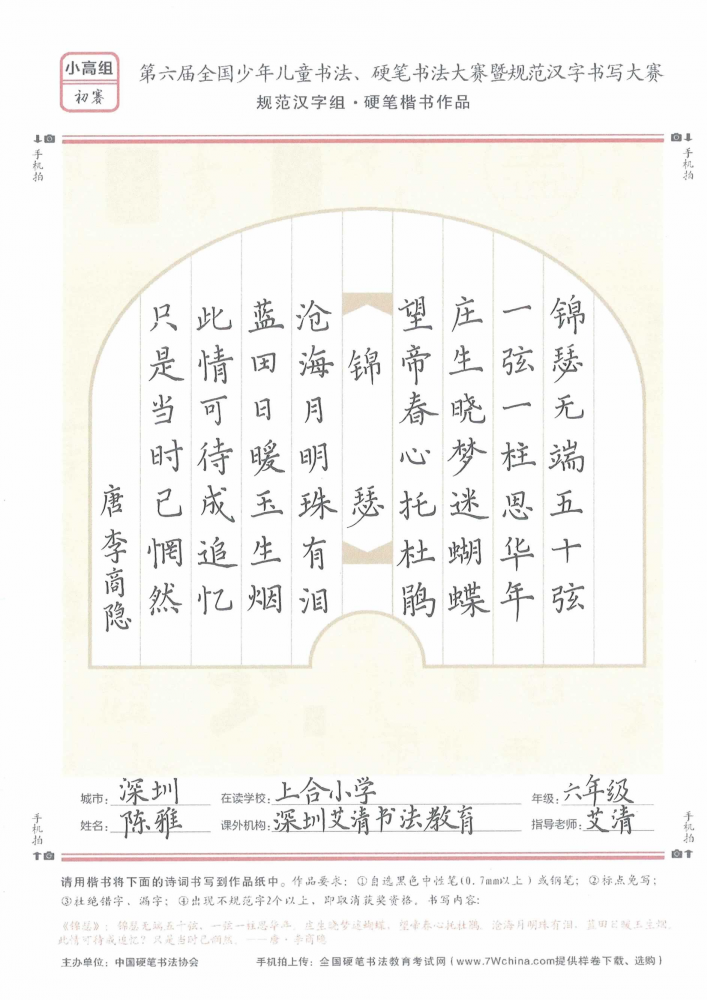 小高组
初赛
第六届全国少年儿童书法、硬笔书法大赛暨规范汉字书写大赛
规范汉字组·硬笔楷书作品
手机拍
手机拍
锦瑟无端五十弦
一弦一柱思华年
庄生晓梦迷蝴蝶
望帝春心托杜鹃
锦瑟
沧海月明珠有泪
蓝田日暖玉生烟
此情可待成追忆
只是当时已惘然
唐李商隐
城市：深圳 在读学校：上合小学 年级：六年级
姓名：陈雅 课外机构：深圳艾清书法教育 指导老师：艾清
手机拍
手机拍
请用楷书将下面的诗词书写到作品纸中。作品要求：①自选黑色中性笔(0.7mm以上)或钢笔；②标点免写；
③杜绝错字、漏字；④出现不规范字2个以上，即取消获奖资格。书写内容：
《锦瑟》：锦瑟无端五十弦，一弦一柱思华年。庄生晓梦迷蝴蝶，望帝春心托杜鹃。沧海月明珠有泪，蓝田日暖玉生烟。
此情可待成追忆？只是当时已惘然。——唐·李商隐
主办单位：中国硬笔书法协会 手机拍上传：全国硬笔书法教育考试网（www.7Wchina.com提供样卷下载、选购）